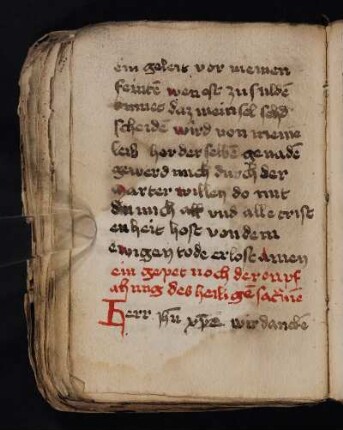 ein geleit vor meinen
feintē wen est zu sulden
kumet daz mein sel schol
scheidē wird von meinē
leib her der selbē genadē
gewerd mich durch der
marter willen do mit
du mich alt vnd alle crist
enheit host von dem
ewigen tode erlost Amen
ein gepet noch der enpf
ahung des heiligē sacͬmē
Herr ihū xp̄e wir dancken